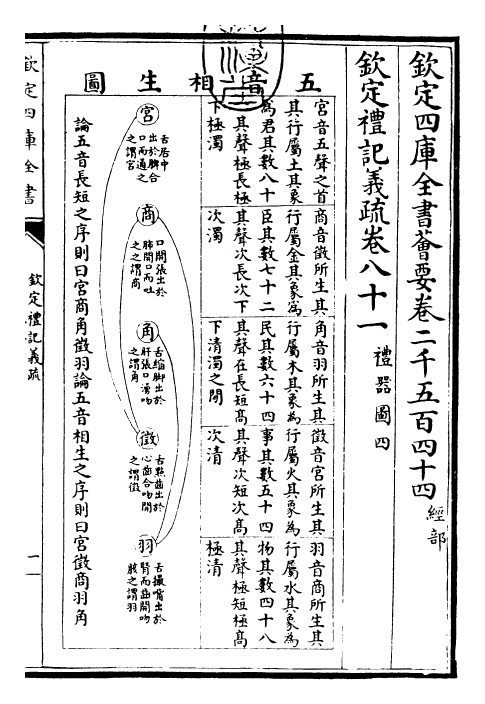 欽定四庫全書薈要卷二千五百四十四 經部
欽定禮記義疏卷八十一 禮器圖四
五音相生圖
宮音五聲之首
其行屬土其象
為君其數八十
一其聲極長極
下極濁
商音徵所生其
行屬金其象為
臣其數七十二
其聲次長次下
次濁
角音羽所生其
行屬木其象為
民其數六十四
其聲在長短高
下清濁之間
徵音宮所生其
行屬火其象為
事其數五十四
其聲次短次高
次清
羽音商所生其
行屬水其象為
物其數四十八
其聲極短極高
極清
宮
舌居中
出於脾合
口而通之
之謂宮
商
口開張出於
肺開口而吐
之之謂商
角
舌縮腳出於
肝張口湧吻
之謂角
徵
舌點齒出於
心齒合吻開
之謂徵
羽
舌撮嘴出於
腎而齒開吻
之謂羽
論五音長短之序則曰宮商角徵羽論五音相生之序則曰宮徵商羽角
欽定四庫全書
欽定禮記義疏
一